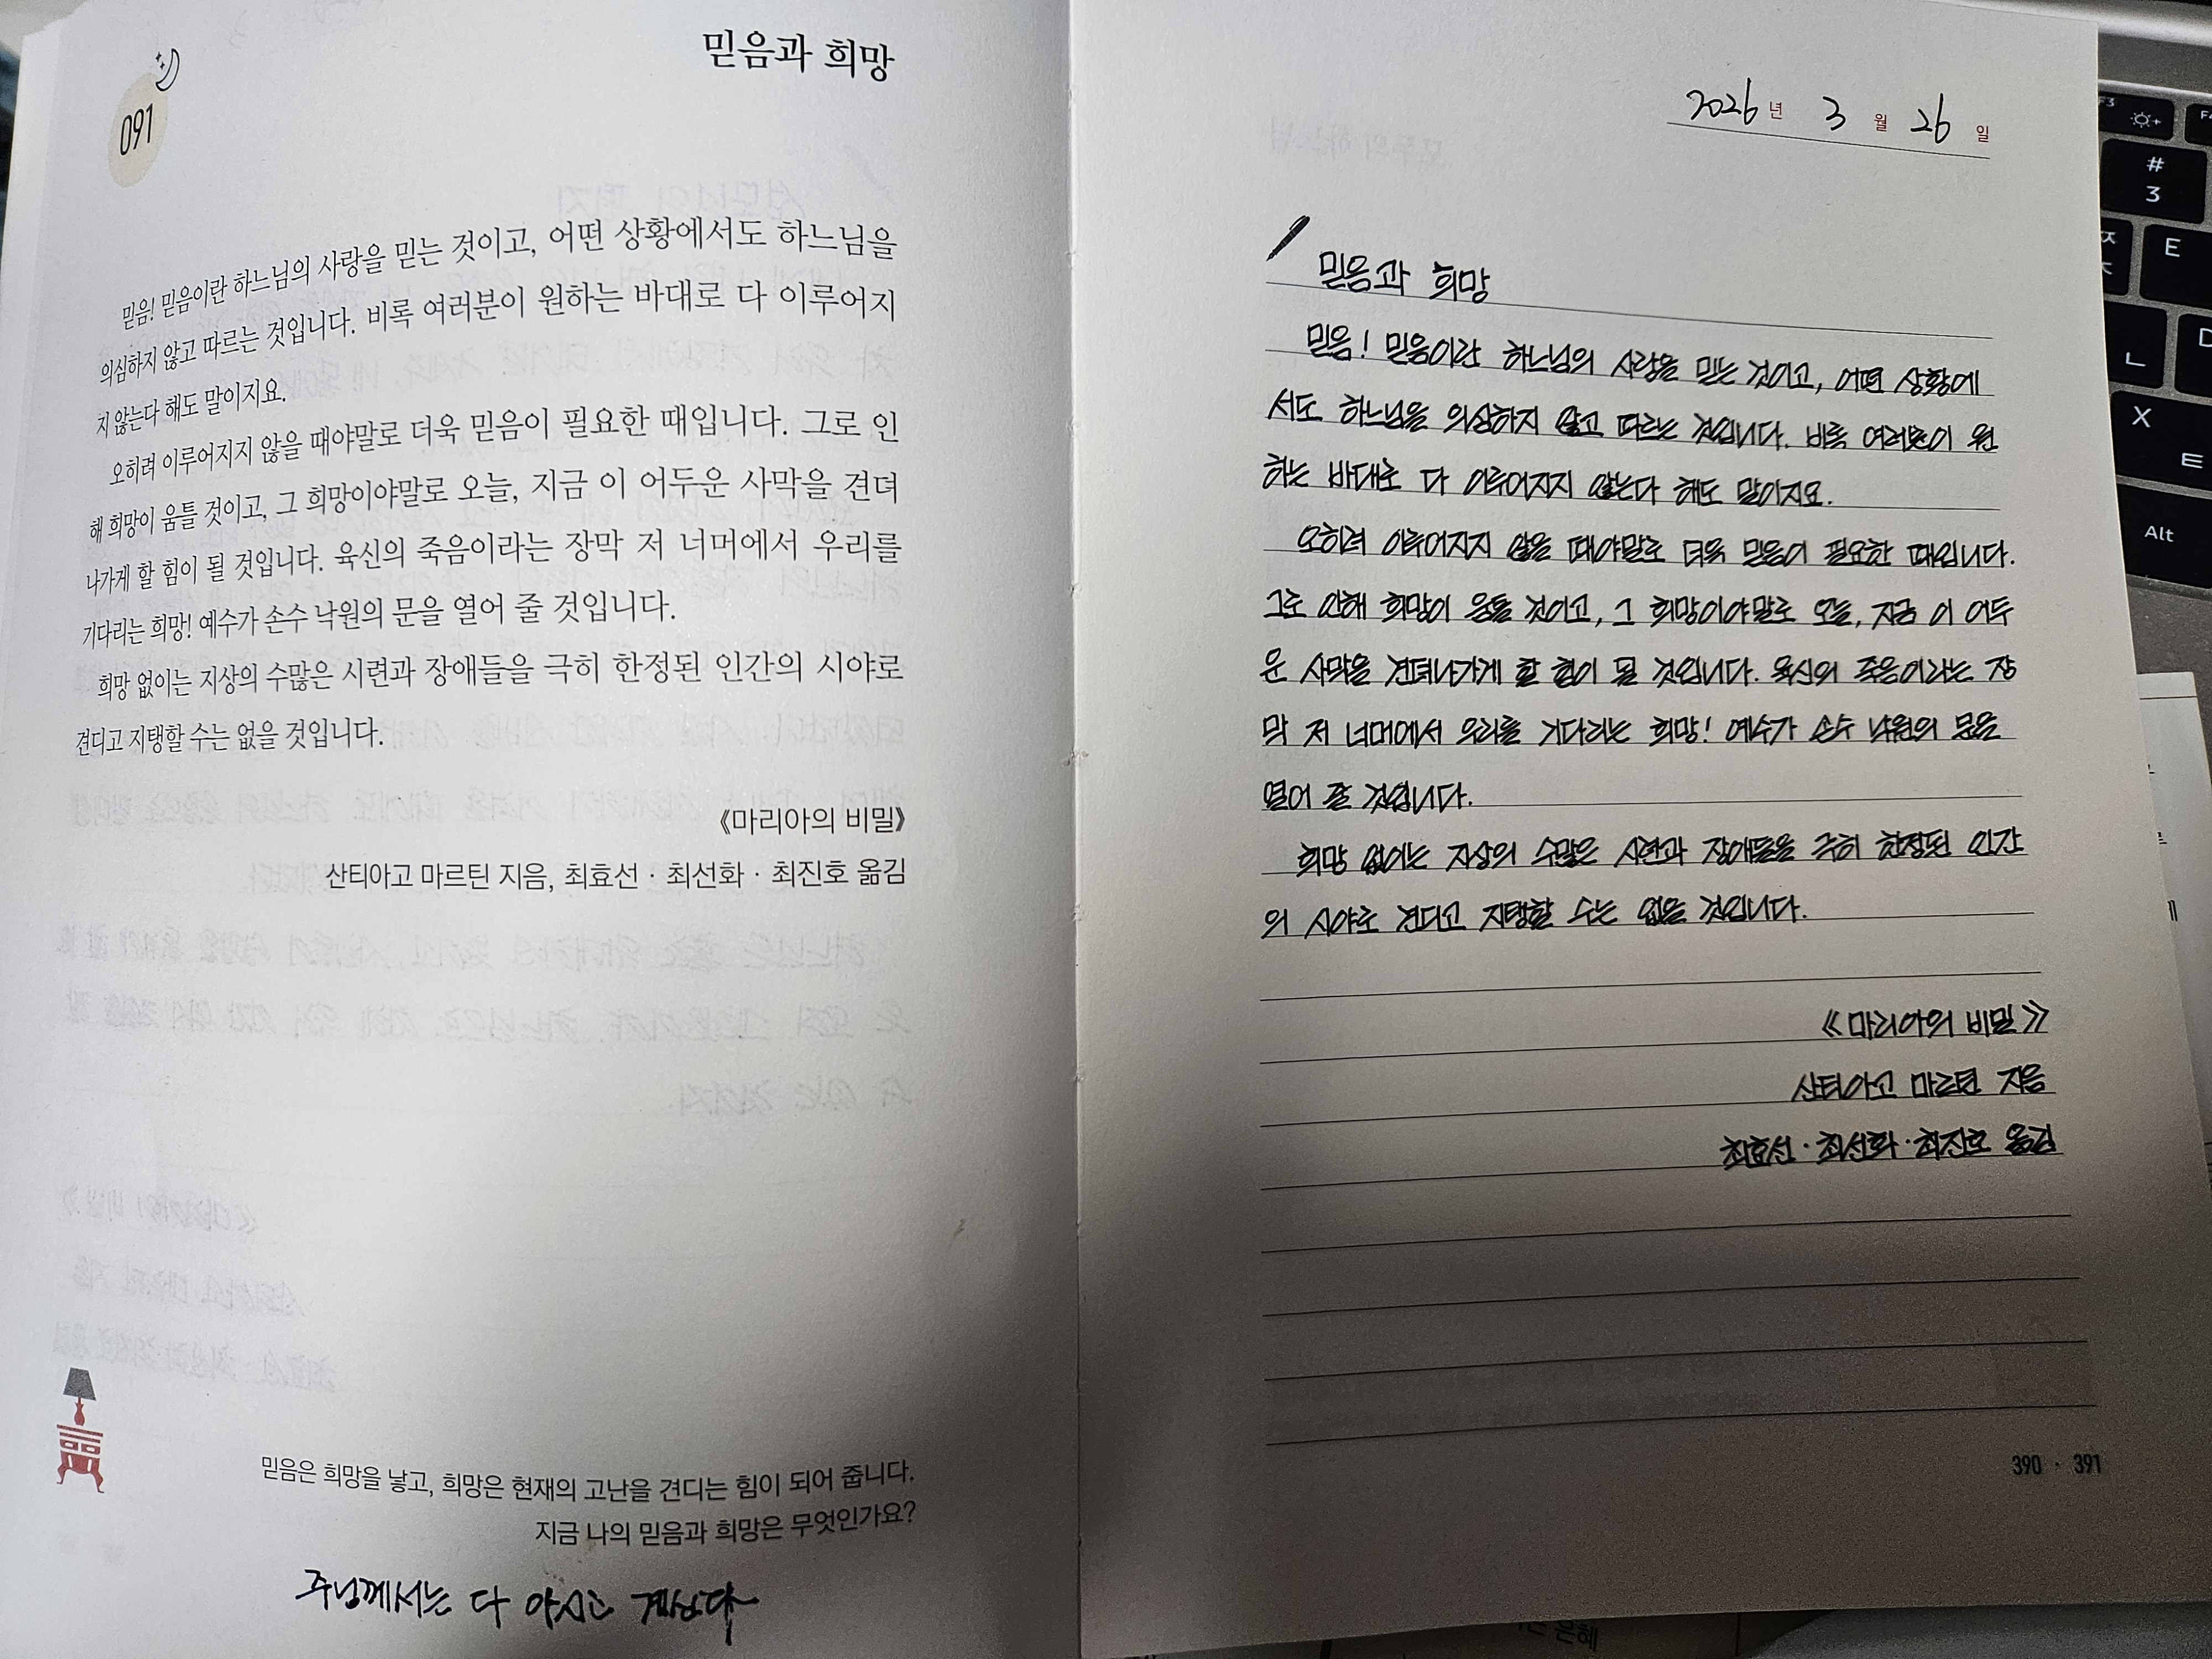 091
믿음과 희망
믿음! 믿음이란 하느님의 사랑을 믿는 것이고, 어떤 상황에서도 하느님을
의심하지 않고 따르는 것입니다. 비록 여러분이 원하는 바대로 다 이루어지
지 않는다 해도 말이지요.
오히려 이루어지지 않을 때야말로 더욱 믿음이 필요한 때입니다. 그로 인
해 희망이 움틀 것이고, 그 희망이야말로 오늘, 지금 이 어두운 사막을 견뎌
나가게 할 힘이 될 것입니다. 육신의 죽음이라는 장막 저 너머에서 우리를
기다리는 희망! 예수가 손수 낙원의 문을 열어 줄 것입니다.
희망 없이는 지상의 수많은 시련과 장애들을 극히 한정된 인간의 시야로
견디고 지탱할 수는 없을 것입니다.
《마리아의 비밀》
산티아고 마르틴 지음, 최효선 · 최선화 · 최진호 옮김
믿음은 희망을 낳고, 희망은 현재의 고난을 견디는 힘이 되어 줍니다.
지금 나의 믿음과 희망은 무엇인가요?
주님께서는 다 아시고 계신다
2026년 3월 26일
믿음과 희망
믿음! 믿음이란 하느님의 사랑을 믿는 것이고, 어떤 상황에
서도 하느님을 의심하지 않고 따르는 것입니다. 비록 여러분이 원
하는 바대로 다 이루어지지 않는다 해도 말이지요.
오히려 이루어지지 않을 때야말로 더욱 믿음이 필요한 때입니다.
그로 인해 희망이 움틀 것이고, 그 희망이야말로 오늘, 지금 이 어두
운 사막을 견뎌나가게 할 힘이 될 것입니다. 육신의 죽음이라는 장
막 저 너머에서 우리를 기다리는 희망! 예수가 손수 낙원의 문을
열어 줄 것입니다.
희망 없이는 지상의 수많은 시련과 장애들을 극히 한정된 인간
의 시야로 견디고 지탱할 수는 없을 것입니다.
《마리아의 비밀》
산티아고 마르틴 지음
최효선 · 최선화 · 최진호 옮김
390 · 391
F3
#
3
E
ㄴ
D
X
ㅌ
Alt
은혜